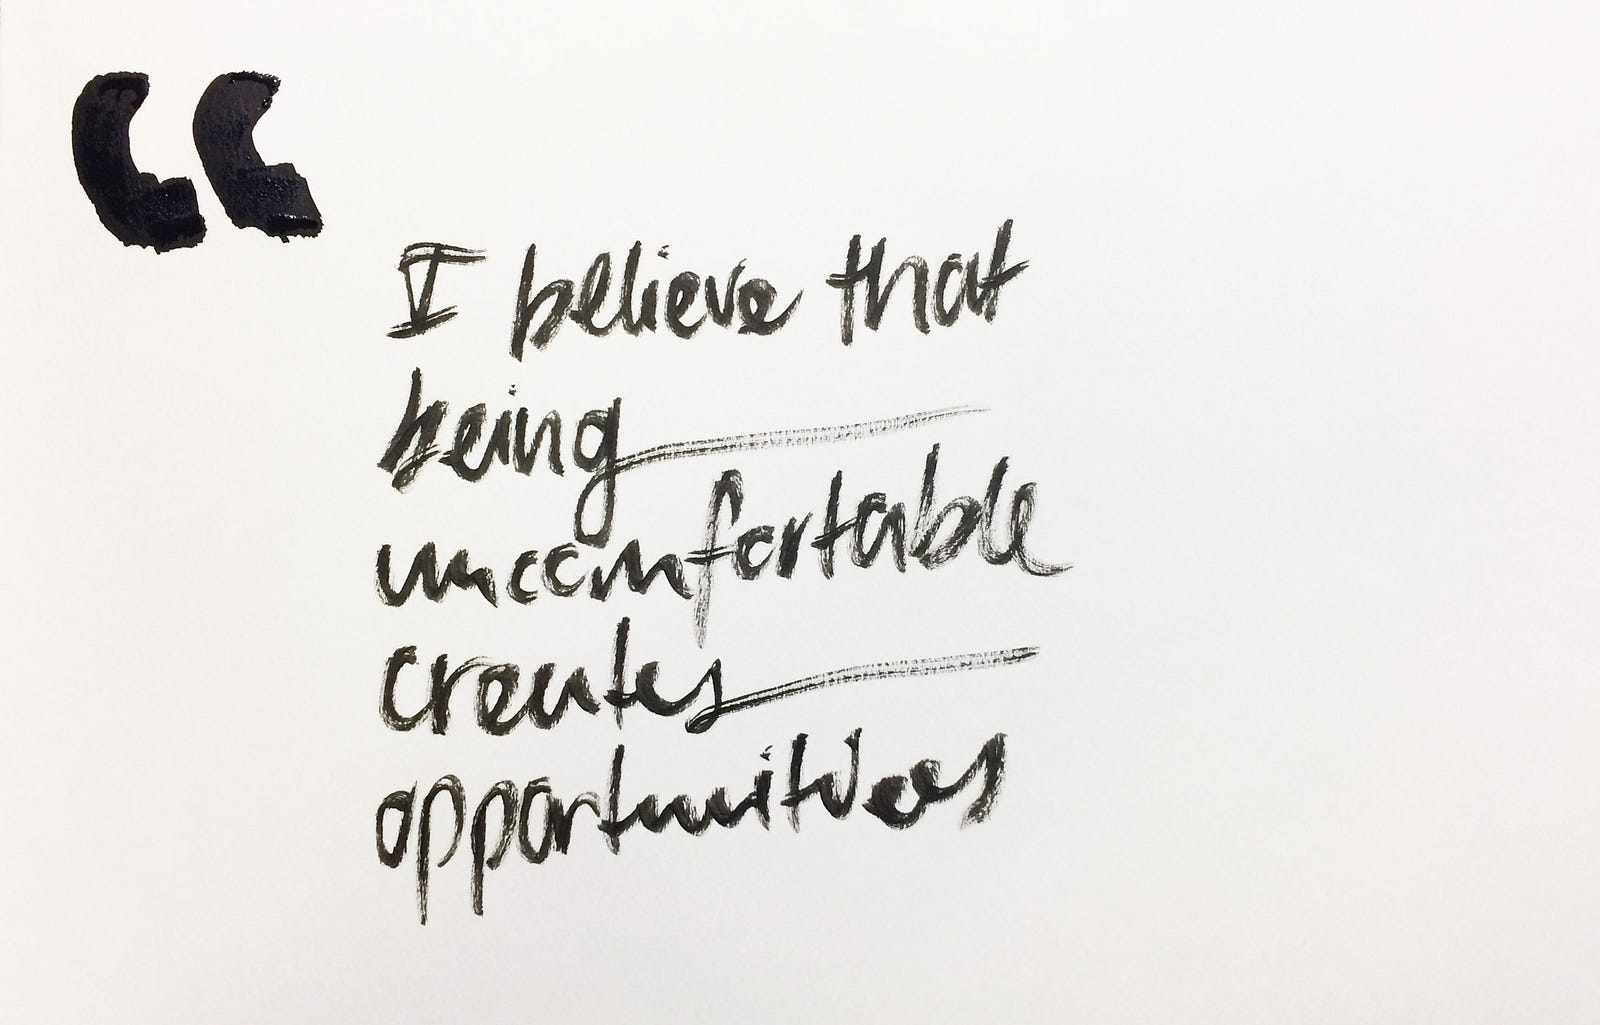 “
I believe that
being
uncomfortable
creates
opportunities